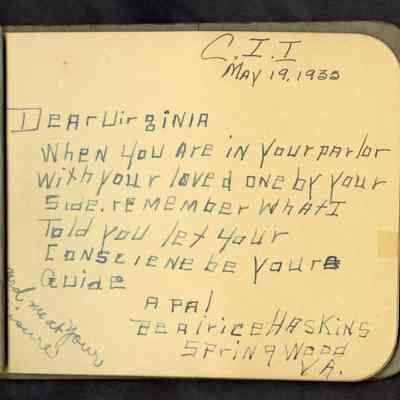 C.I.I
MAY 19.1933
DEAR Virginia
When you Are in your parlor
With your loved one by your
Side. remember What I
Told you let your
Consciene be yours
Guide
A pal
Beatrice Haskins
Spring Wood
VA.
me at your